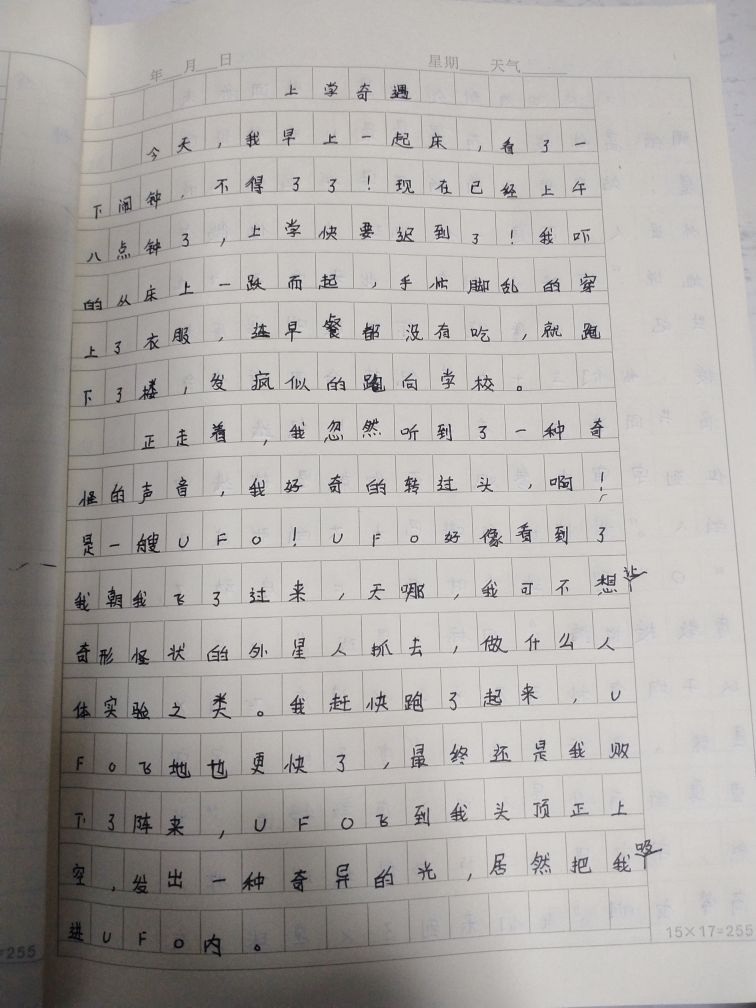 年 月 日 星期 天气
上学奇遇
今天，我早上一起床，看了一
下闹钟，不得了了！现在已经上午
八点钟了，上学快要迟到了！我吓
的从床上一跃而起，手忙脚乱的穿
上了衣服，连早餐都没有吃，就跑
下了楼，发疯似的跑向学校。
正走着，我忽然听到了一种奇
怪的声音，我好奇的转过头，啊！
是一艘UFO！UFO好像看到了
我朝我飞了过来，天哪，我可不想让
奇形怪状的外星人抓去，做什么人
体实验之类。我赶快跑了起来，U
FO飞地也更快了，最终还是我败
下了阵来，UFO飞到我头顶正上
空，发出一种奇异的光，居然把我吸
进UFO内。
15×17=255
=255